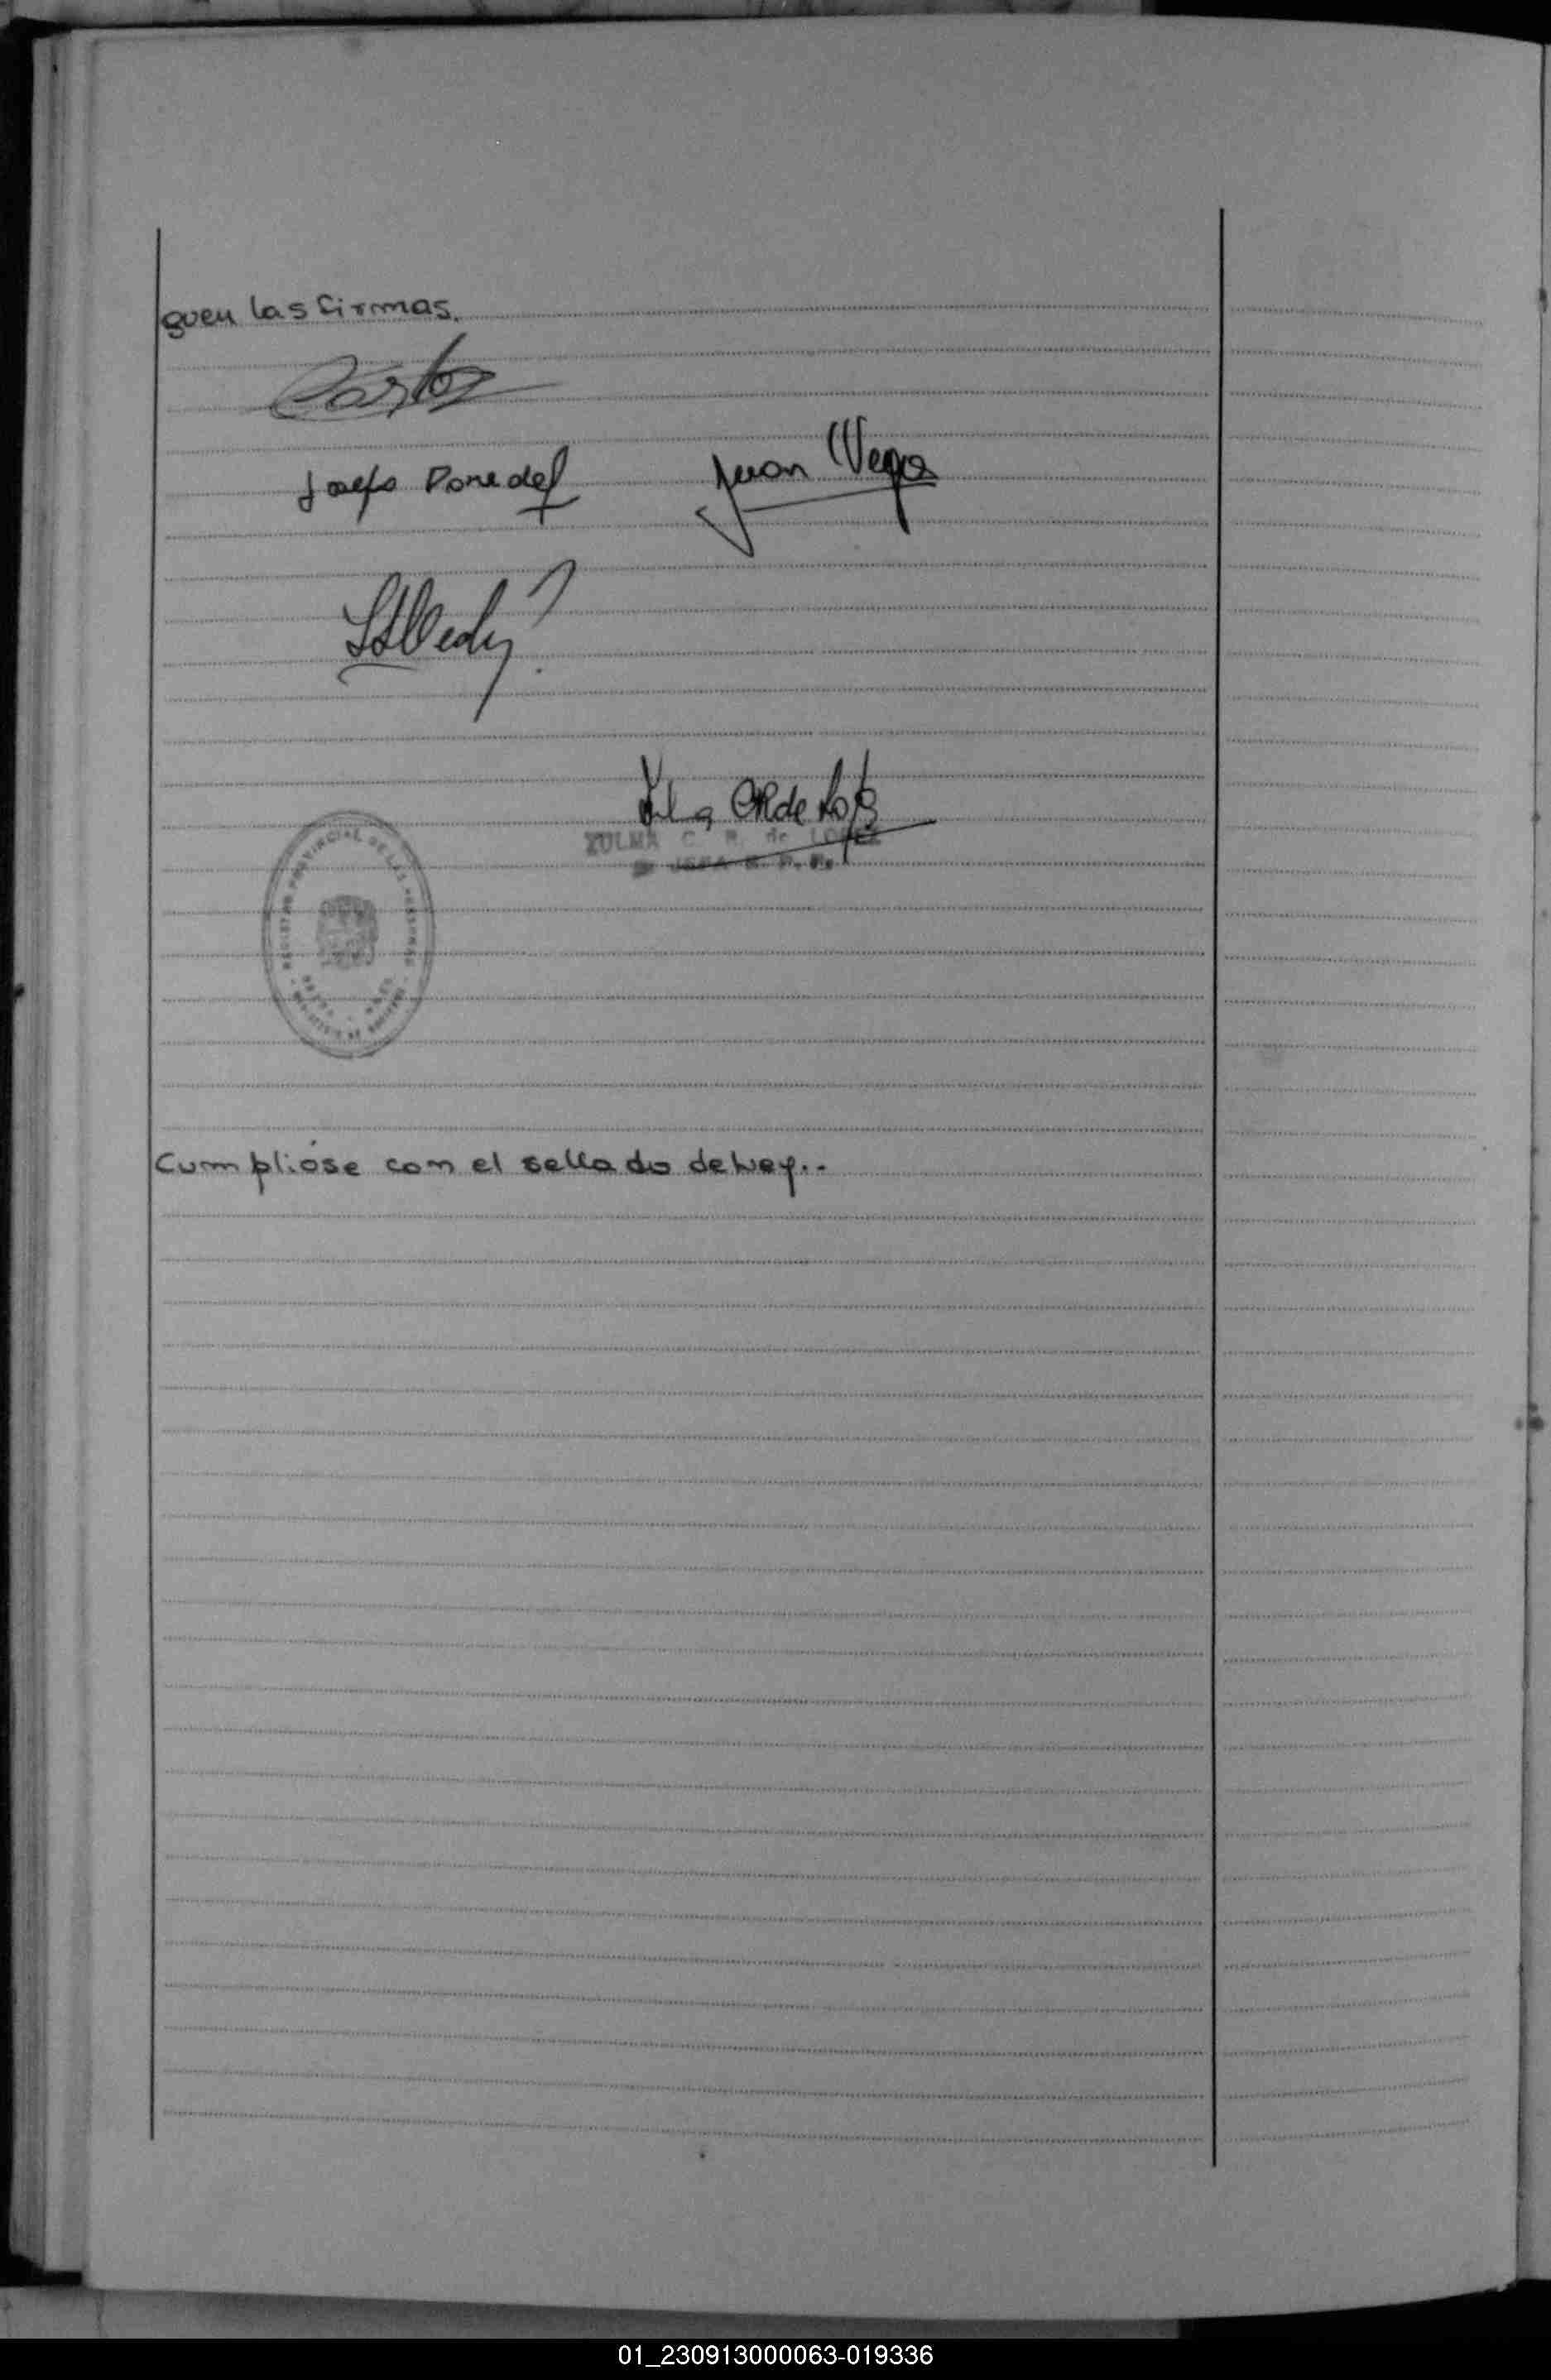 guen las firmas.
Carlos
Josefo Juan Vega
Zulma CR de López
ZULMA C. R. de LOPEZ
JEFA
REGISTRO PROVINCIAL DE LAS PERSONAS
Cumplióse con el sellado de Ley..-
01_230913000063-019336